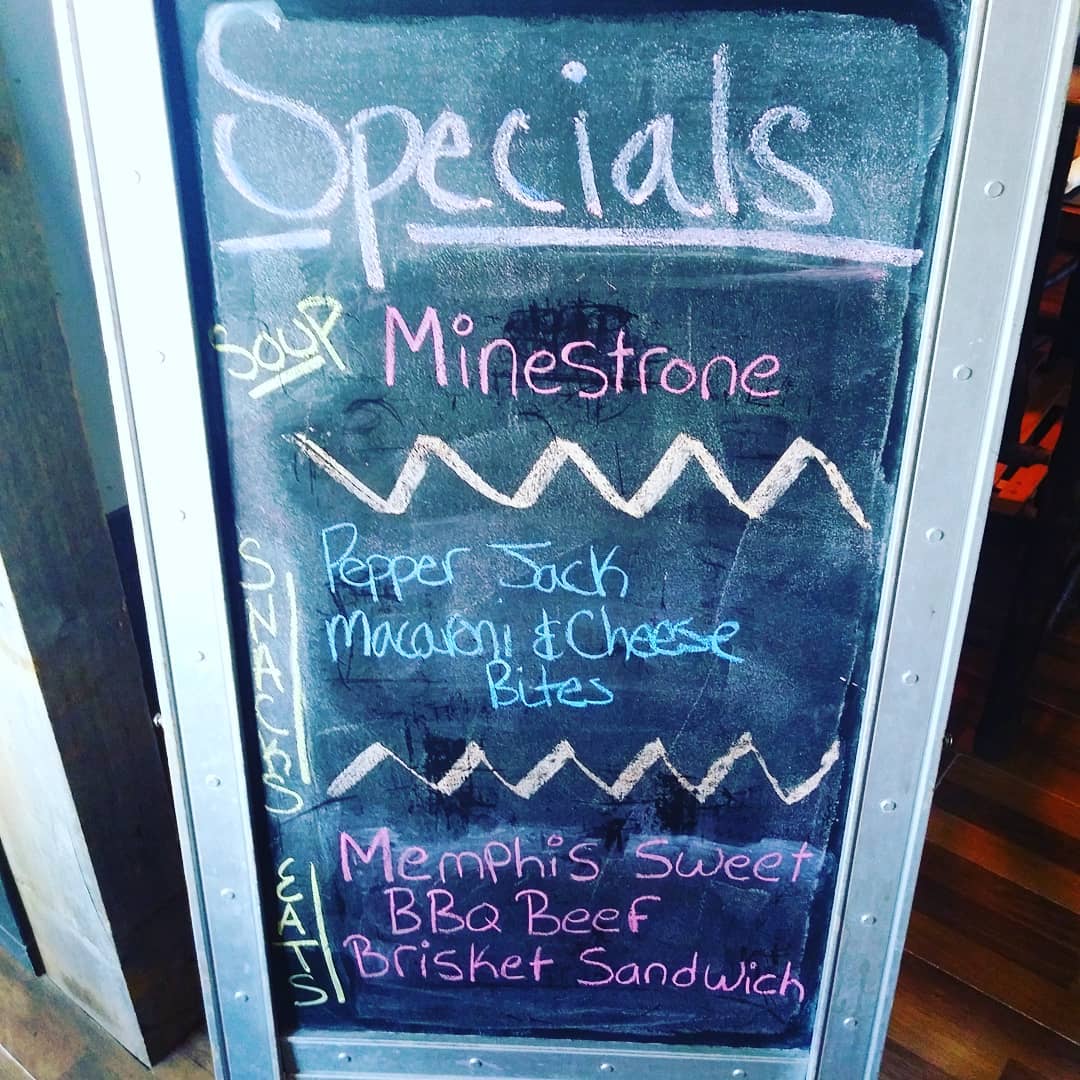 Specials
SOUP Minestrone
SNACKS
Pepper Jack
Macaroni & Cheese
Bites
EATS
Memphis Sweet
BBQ Beef
Brisket Sandwich